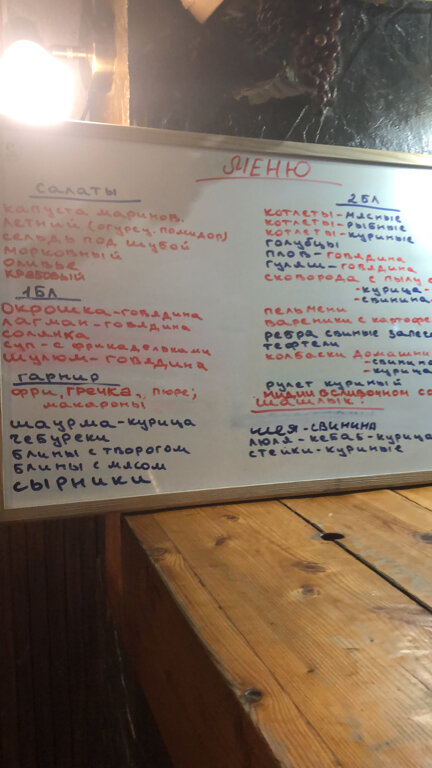 МЕНЮ
САЛАТЫ
КАПУСТА МАРИНОВ.
ЛЕТНИЙ (ОГУРЕЦ, ПОМИДОР)
СЕЛЬДЬ ПОД ШУБОЙ
МОРКОВНЫЙ
ОЛИВЬЕ
КРАБОВЫЙ
1БЛ
ОКРОШКА-ГОВЯДИНА
ЛАГМАН-ГОВЯДИНА
СОЛЯНКА
СУП-С ФРИКАДЕЛЬКАМИ
ШУЛЮМ-ГОВЯДИНА
ГАРНИР
ФРИ, ГРЕЧКА, ПЮРЕ;
МАКАРОНЫ
ШАУРМА-КУРИЦА
ЧЕБУРЕКИ
БЛИНЫ С ТВОРОГОМ
БЛИНЫ С МЯСОМ
СЫРНИКИ
2БЛ
КОТЛЕТЫ-МЯСНЫЕ
КОТЛЕТЫ-РЫБНЫЕ
КОТЛЕТЫ-КУРИНЫЕ
ГОЛУБЦЫ
ПЛОВ-ГОВЯДИНА
ГУЛЯШ-ГОВЯДИНА
СКОВОРОДА С ПЫЛУ
-КУРИЦА-
-СВИНИНА
ПЕЛЬМЕНИ
ВАРЕНИКИ С КАРТОФЕ
РЕБРА СВИНЫЕ ЗАПЕ
ТЕФТЕЛИ
КОЛБАСКИ ДОМАШНИ
-СВИН
-КУРИЦА
РУЛЕТ КУРИНЫЙ
МИДИИ В СЛИВОЧНОМ СО
ШАШЛЫК:
ШЕЯ-СВИНИНА
ЛЮЛЯ-КЕБАБ-КУРИЦА
СТЕЙКИ-КУРИНЫЕ